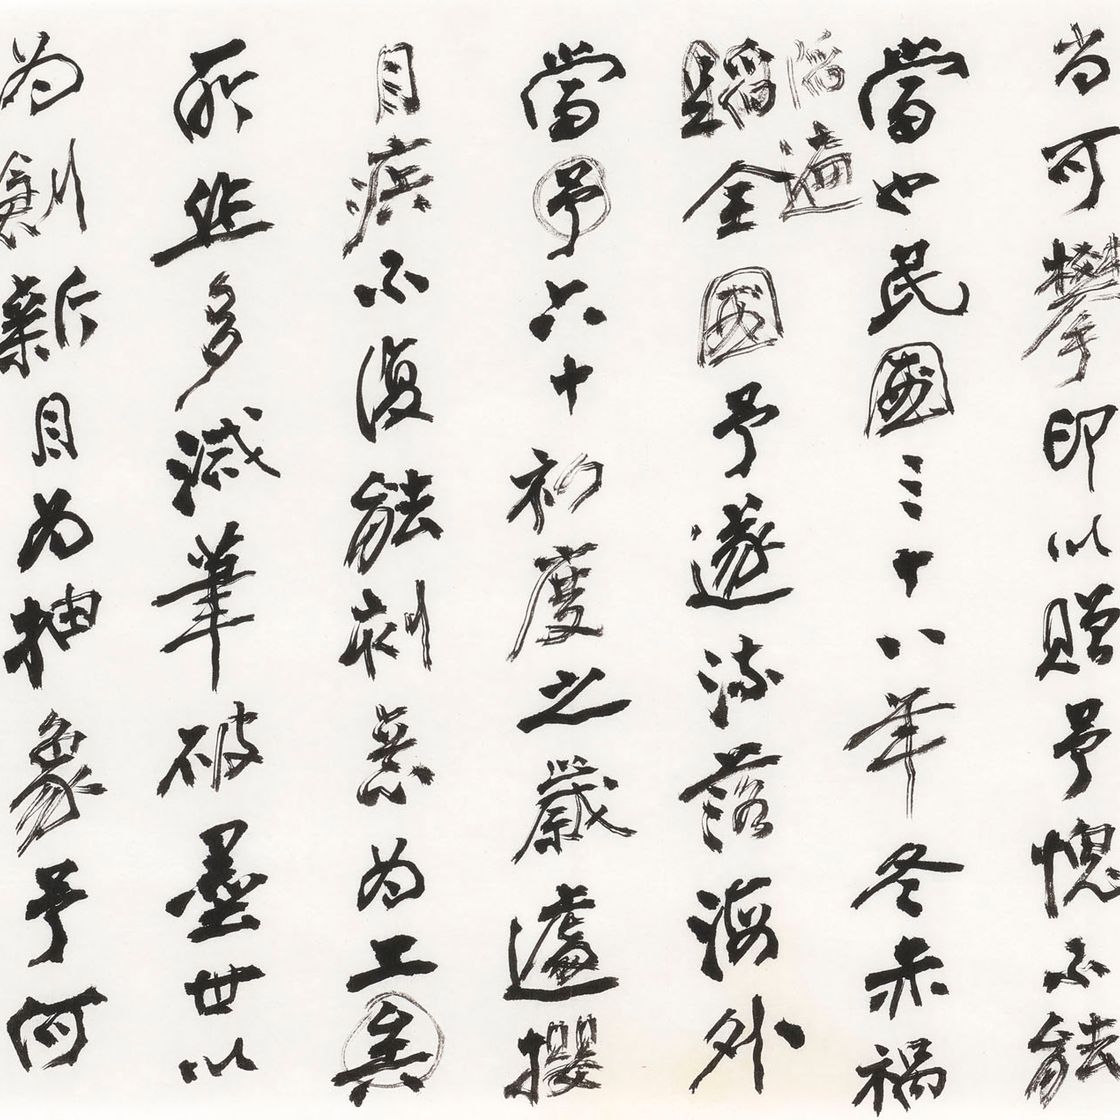 尚可攀印以贈予愧不能
當也民國三十八年冬赤禍
滔遍
蹈全國予遂流落海外
當予六十初度之歲遽攖
目疾不復能刻意為工矣
所作多減筆破墨世以
為創新目為抽象予何